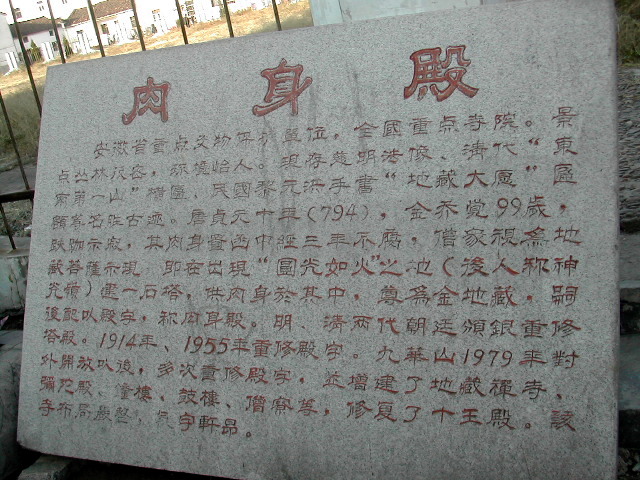 肉身殿
安徽省重点文物保护單位，全國重点寺院。景
点丛林茂密，环境怡人。现存慈明法像、清代“東
南第一山”橫匾、民國黎元洪手書“地藏大愿”匾
額等名胜古迹。唐貞元十年（794），金乔觉99歲，
趺跏示寂，其肉身置函中經三年不腐，僧家視爲地
藏菩薩示現，即在出現“圓光如火”之地（後人称神
光嶺）建一石塔，供肉身於其中，尊爲金地藏，嗣
後配以殿宇，称肉身殿。明、清两代朝廷頒銀重修
塔殿。1914年、1955年重修殿宇。九華山1979年對
外開放以後，多次重修殿宇，並增建了地藏禪寺、
彌陀殿、鐘樓、鼓樓、僧寮等，修复了十王殿。該
寺布局嚴整，殿宇軒昂。